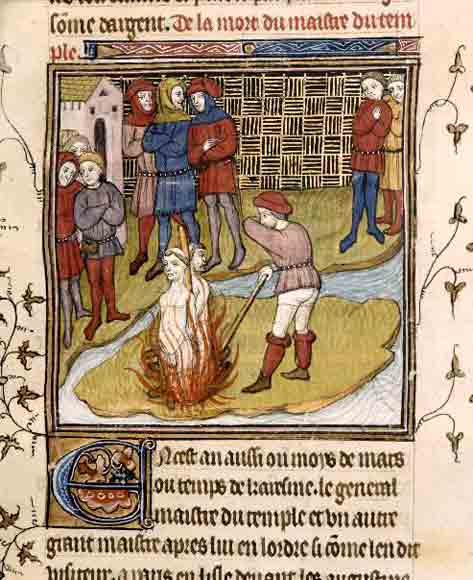 sōme dargent. De la mort du maistre du tem
ple.
En cest an aussi ou moys de mars
ou temps de karesme. le general
maistre du temple et vn autre
grant maistre apres lui en lordre si cōme len dit
visiteur. a paris en lisle deuant les augustins